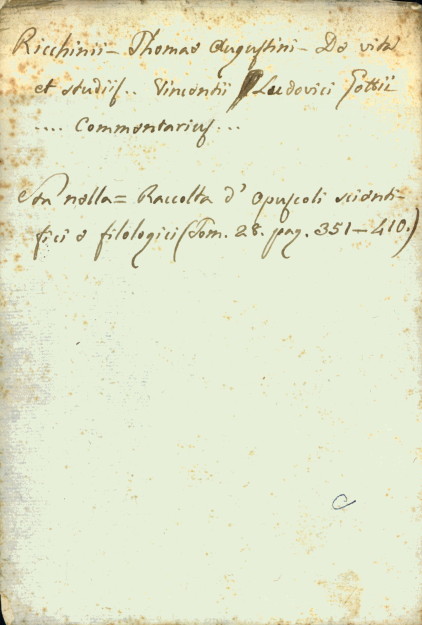 Ricchinii - Thomae Augustini - De vita
et studiis.. Vincentii Ludovici Gottii
.... Commentarius...
Sta nella = Raccolta d' Opuscoli scienti-
fici e filologici (Tom. 28. pag. 351-410.)
C